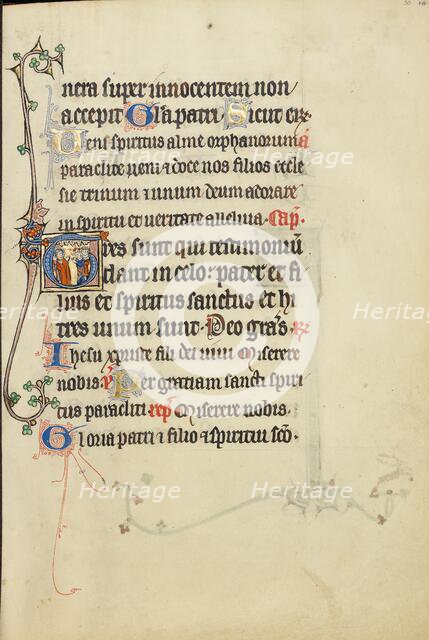 nera super innocentem non
accepit Gl'a patri Sicut er
Veni spiritus alme orphanorum a
paraclite veni & doce nos filios eccle
sie trinum & unum deum adorare
in spiritu et veritate alleluia. Cap'
Tres sunt qui testimoniū
dant in celo: pater et fi
lius et spiritus sanctus et hi
tres unum sunt. Deo gras. R
Ihesu xpiste fili dei uiui Miserere
nobis. V Per gratiam sancti spiri
tus paracliti. rep' Miserere nobis.
Gloria patri & filio & spiritui sco.
Heritage Images